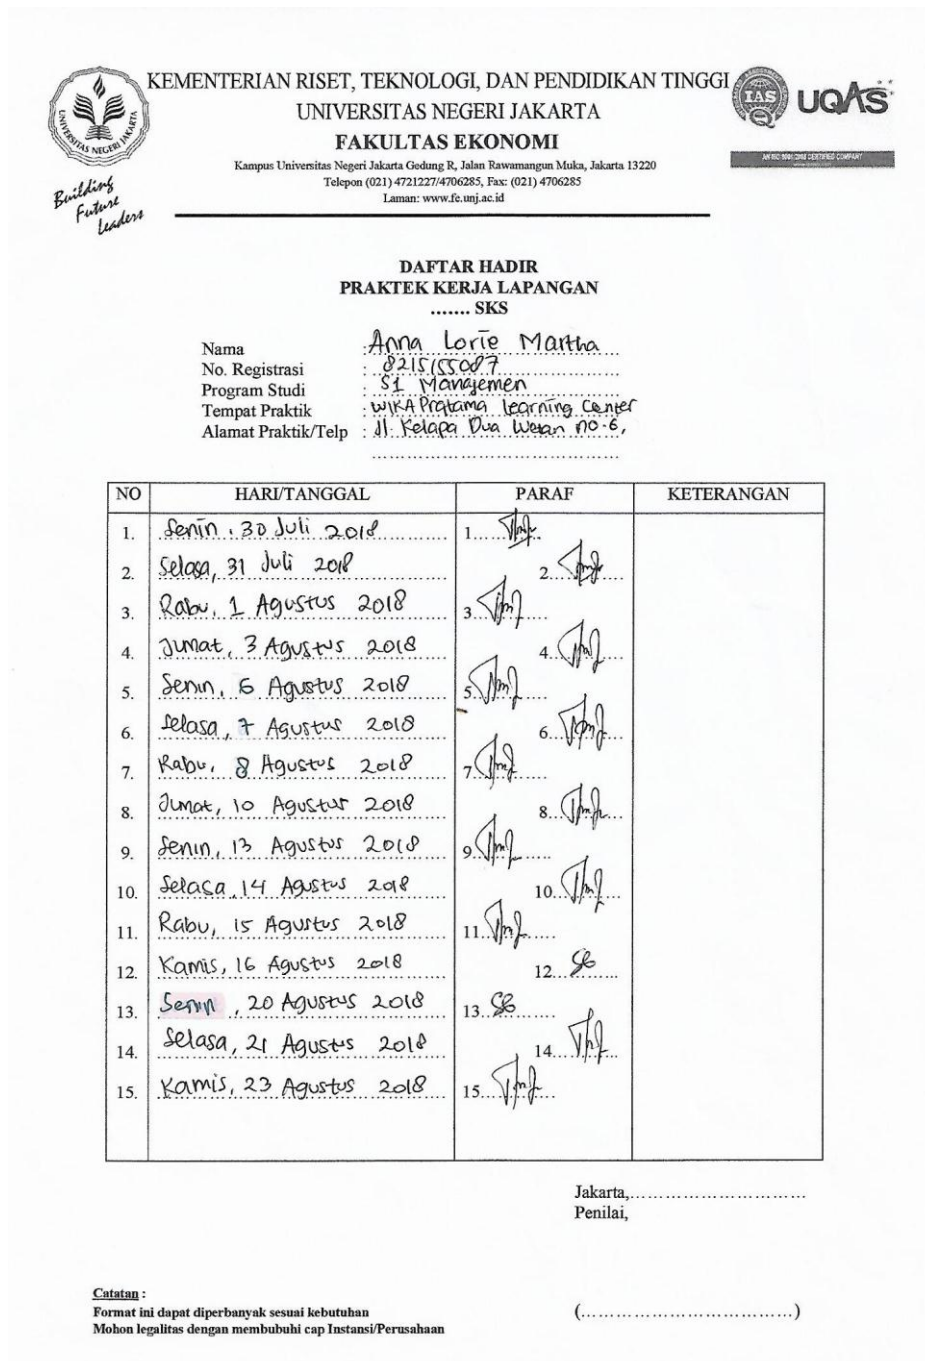 KEMENTERIAN RISET, TEKNOLOGI, DAN PENDIDIKAN TINGGI
UNIVERSITAS NEGERI JAKARTA
FAKULTAS EKONOMI
Kampus Universitas Negeri Jakarta Gedung R, Jalan Rawamangun Muka, Jakarta 13220
Telepon (021) 4721227/4706285, Fax: (021) 4706285
Laman: www.fe.unj.ac.id
UNIVERSITAS NEGERI JAKARTA
Building
Future
Leaders
IAS
UQAS
AN ISO 9001:2008 CERTIFIED COMPANY
DAFTAR HADIR
PRAKTEK KERJA LAPANGAN
....... SKS
Nama : Anna Lorie Martha
No. Registrasi : 8215155087
Program Studi : S1 Manajemen
Tempat Praktik : WIKA Pratama Learning Center
Alamat Praktik/Telp : Jl. Kelapa Dua Wetan no.6,
NO HARI/TANGGAL PARAF KETERANGAN
1. Senin, 30 Juli 2018 1.
2. Selasa, 31 Juli 2018 2.
3. Rabu, 1 Agustus 2018 3.
4. Jumat, 3 Agustus 2018 4.
5. Senin, 6 Agustus 2018 5.
6. Selasa, 7 Agustus 2018 6.
7. Rabu, 8 Agustus 2018 7.
8. Jumat, 10 Agustus 2018 8.
9. Senin, 13 Agustus 2018 9.
10. Selasa, 14 Agustus 2018 10.
11. Rabu, 15 Agustus 2018 11.
12. Kamis, 16 Agustus 2018 12.
13. Senin, 20 Agustus 2018 13.
14. Selasa, 21 Agustus 2018 14.
15. Kamis, 23 Agustus 2018 15.
Jakarta,..............................
Penilai,
Catatan :
Format ini dapat diperbanyak sesuai kebutuhan
(....................................)
Mohon legalitas dengan membubuhi cap Instansi/Perusahaan